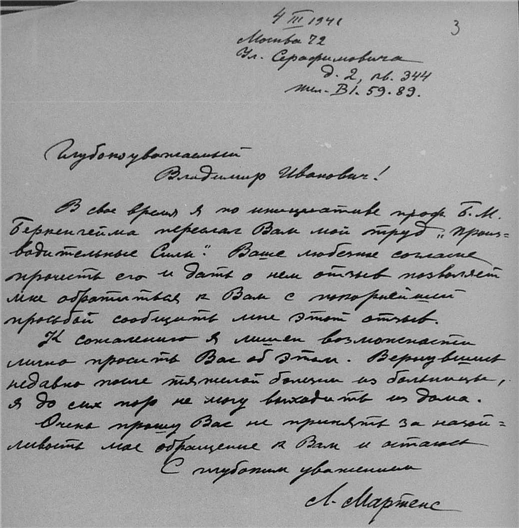 4 III 1941
3
Москва 72
Ул. Серафимовича
д. 2, кв. 344
тел. В1. 59. 89.
Глубокоуважаемый
Владимир Иванович!
В свое время я по инициативе проф. Б. М.
Беркенгейма переслал Вам мой труд „Произ=
водительные Силы“. Ваше любезное согласие
прочесть его и дать о нем отзыв позволяет
мне обратиться к Вам с покорнейшей
просьбой сообщить мне этот отзыв.
К сожалению я лишен возможности
лично просить Вас об этом. Вернувшись
недавно после тяжелой болезни из больницы,
я до сих пор не могу выходить из дома.
Очень прошу Вас не принять за назой=
ливость мое обращение к Вам и остаюсь
С глубоким уважением
Л. Мартенс